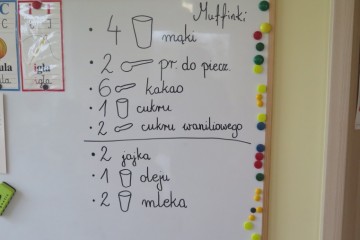 Muffinki
• 4 mąki
• 2 pr. do piecz.
• 6 kakao
• 1 cukru
• 2 cukru waniliowego
• 2 jajka
• 1 oleju
• 2 mleka
C
igła
igła